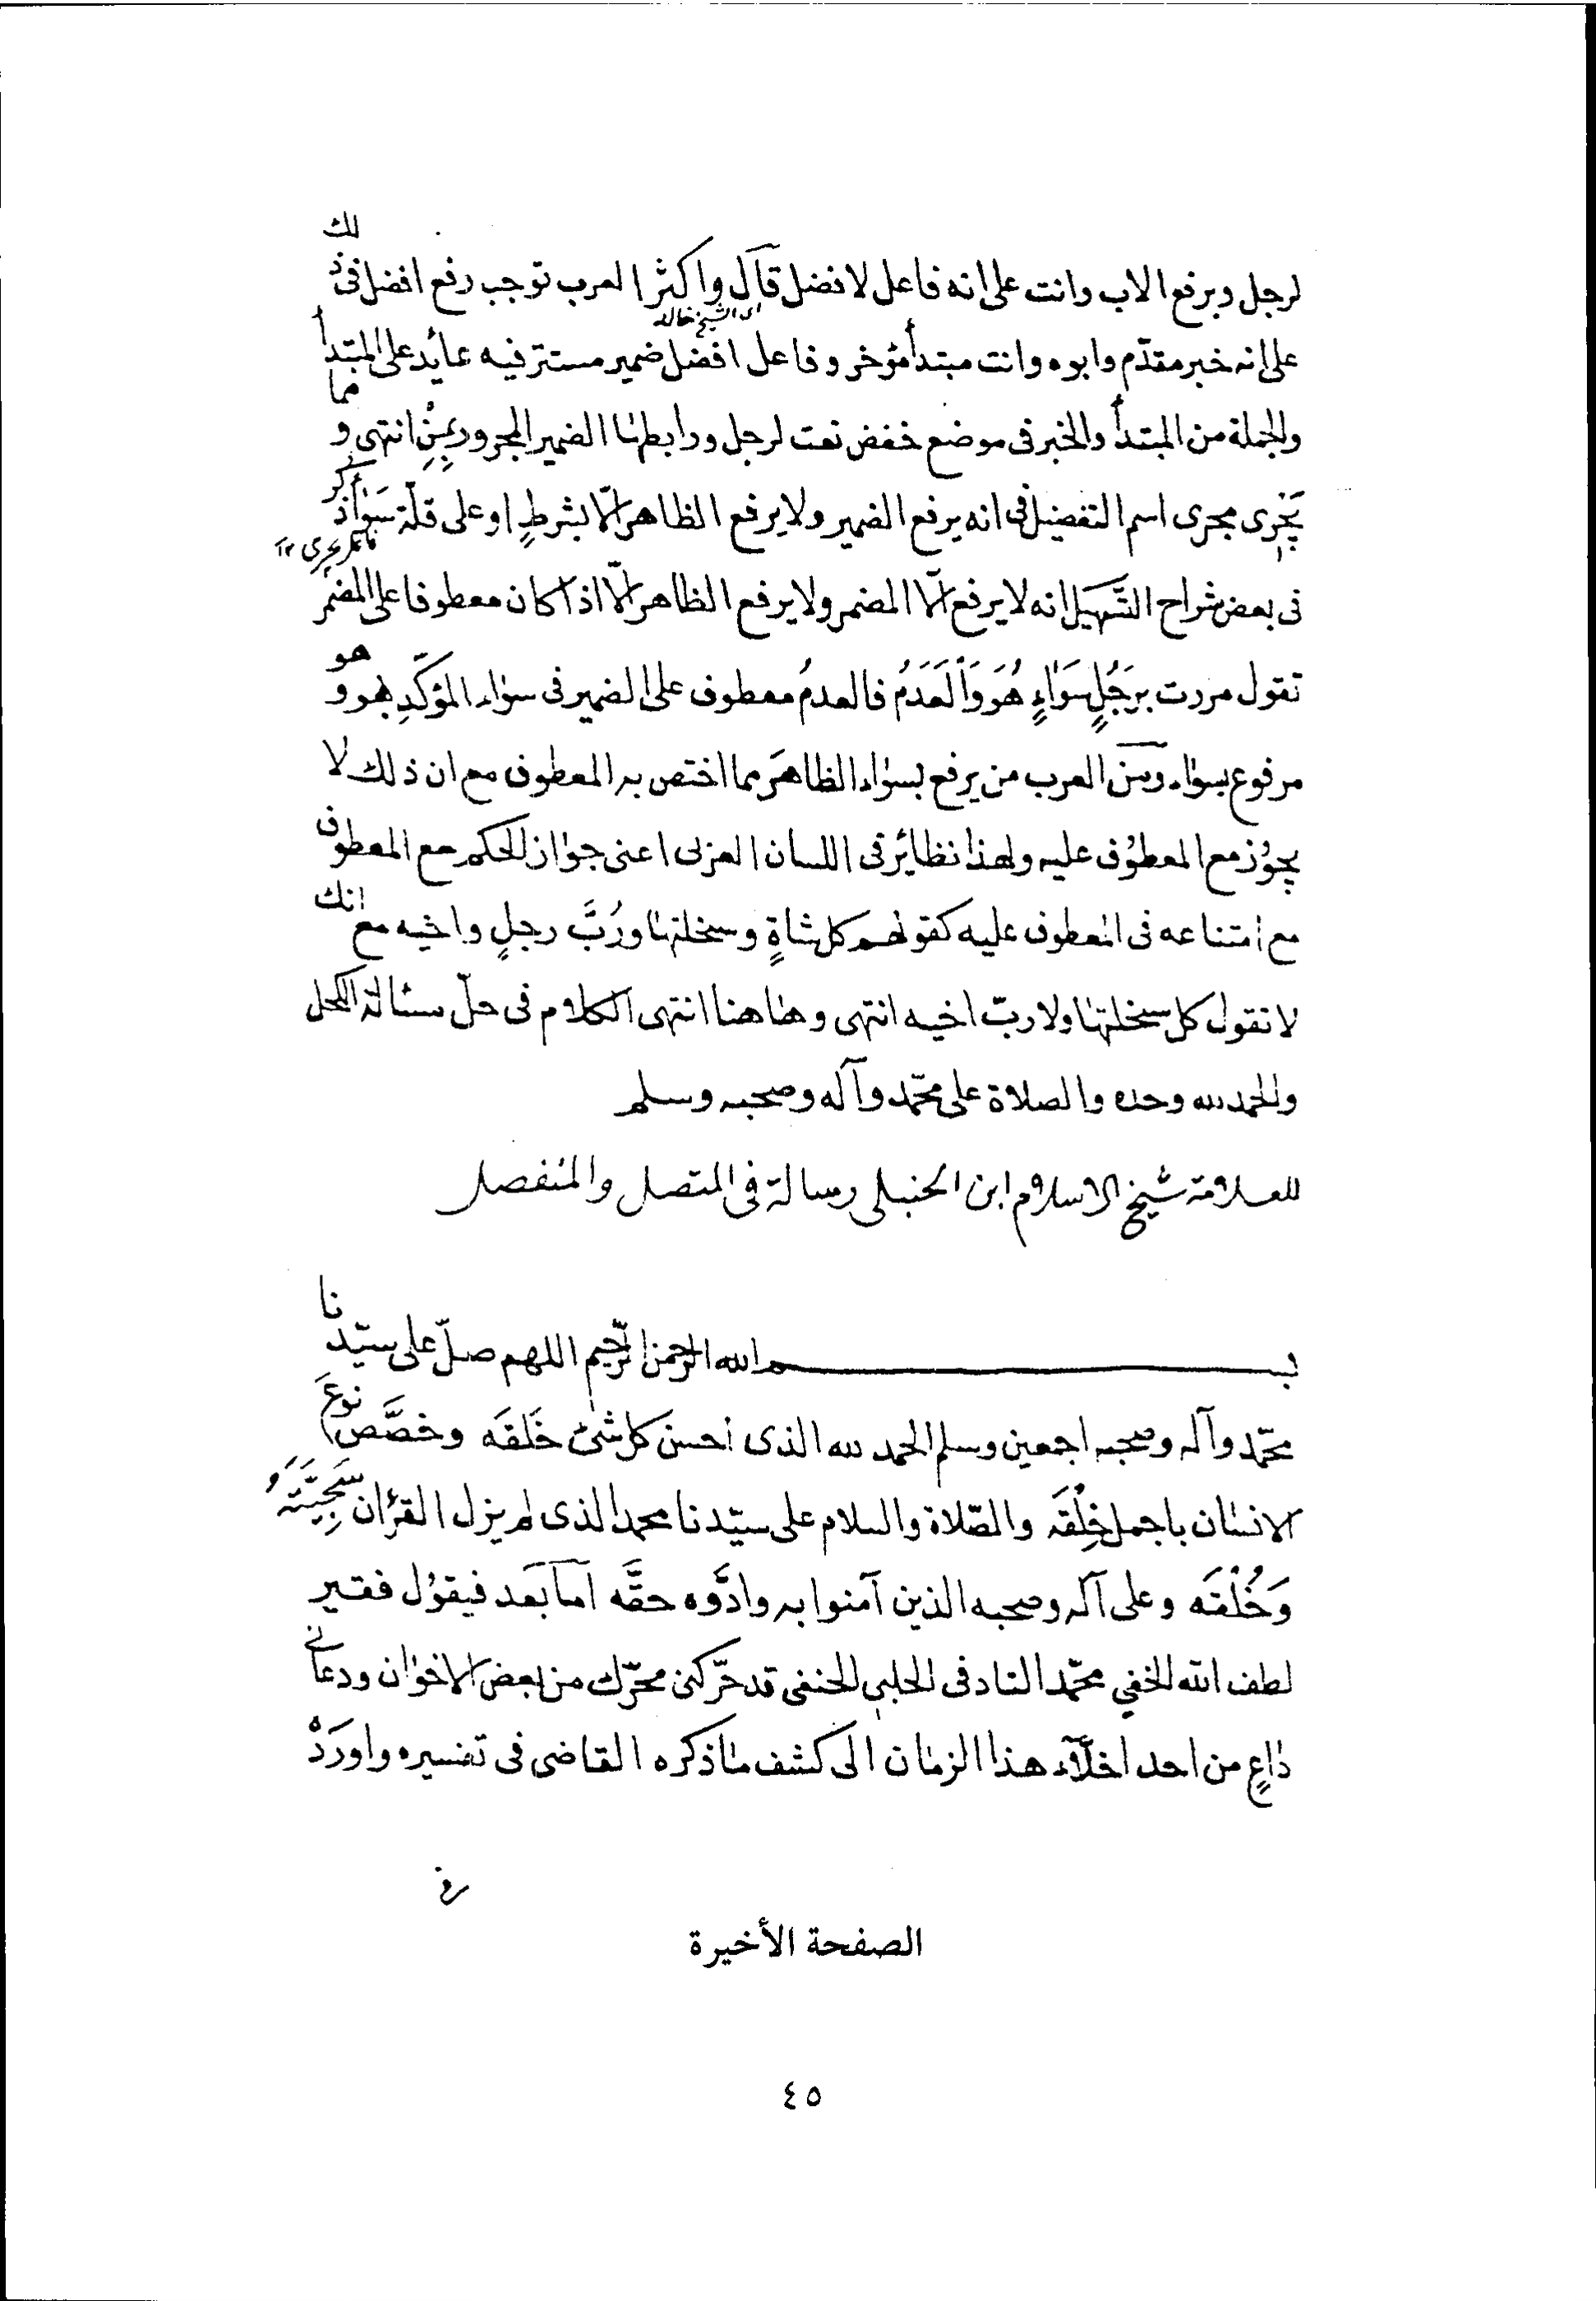 لرجل وبرفع الاب وانت على انه فاعل لافضل قال واكثر العرب توجب رفع افضل فى ذلك
اى الشيخ خالد
على انه خبر مقدّم وابوه وانت مبتدأ مؤخر وفاعل افضل ضمير مستتر فيه عائد على المبتدأ
والجملة من المبتدأ والخبر فى موضع خفض نعت لرجل ورابطها الضمير المجرور بمِنْ انتهى ومما
يَجْرى مجرى اسم التفضيل فى انه يرفع الضمير ولا يرفع الظاهر الّا بشرطٍ او على قلّة سَوَاء ذكر
فاعل يجرى ١٢
فى بعض شراح التَّسهيل انه لا يرفع الّا المضمر ولا يرفع الظاهر الّا اذا كان معطوفا على المضمر
تقول مررت برَجُلٍ سَوَاءٍ هُوَ وَالْعَدَمُ فالعدمُ معطوف على الضمير فى سواء المؤكَّدِ بهو وهو
مرفوع بسواء ومن العرب من يرفع بسواء الظاهرَ مما اختص به المعطوف مع ان ذلك لا
يجوُز مع المعطوُف عليه ولهذا نظائر فى اللسان العربى اعنى جواز الحكم مع المعطوف
مع امتناعه فى المعطوف عليه كقولهم كل شاةٍ وسخلتها ورُبَّ رجلٍ واخيه مع انك
لا تقول كل سخلتها ولا ربّ اخيه انتهى وهاهنا انتهى الكلام فى حلّ مسئالة الكحل
والحمد لله وحده والصلاة على محمّد وآله وصحبه وسلم
للعلامة شيخ الاسلام ابن الحنبلى رسالة فى المتصل والمنفصل
بسم الله الرحمن الرّحيم اللهم صلّ على سيّدنا
محمّد وآله وصحبه اجمعين وسلم الحمد لله الذى احسن كل شئ خَلقَه وخصَّص نوعَ
الانسان باجمل خِلْقَه والصّلاة والسلام على سيّدنا محمد الذى لم يزل القرٰان سَجِيَّتَهُ
وَخُلُقَه وعلى آله وصحبه الذين آمنوا به وادَّوه حقَّه امّا بَعَد فيقوُل فقير
لطف الله الخفي محمّد التادفى الحلبي الحنفى قد حرّكنى محرّك من بعض الاخوان ودعانى
دٰاعٍ من احد اخلّآء هذا الزمان الى كشف ما ذكره القاضى فى تفسيره واورَدْ
الصفحة الأخيرة
٤٥